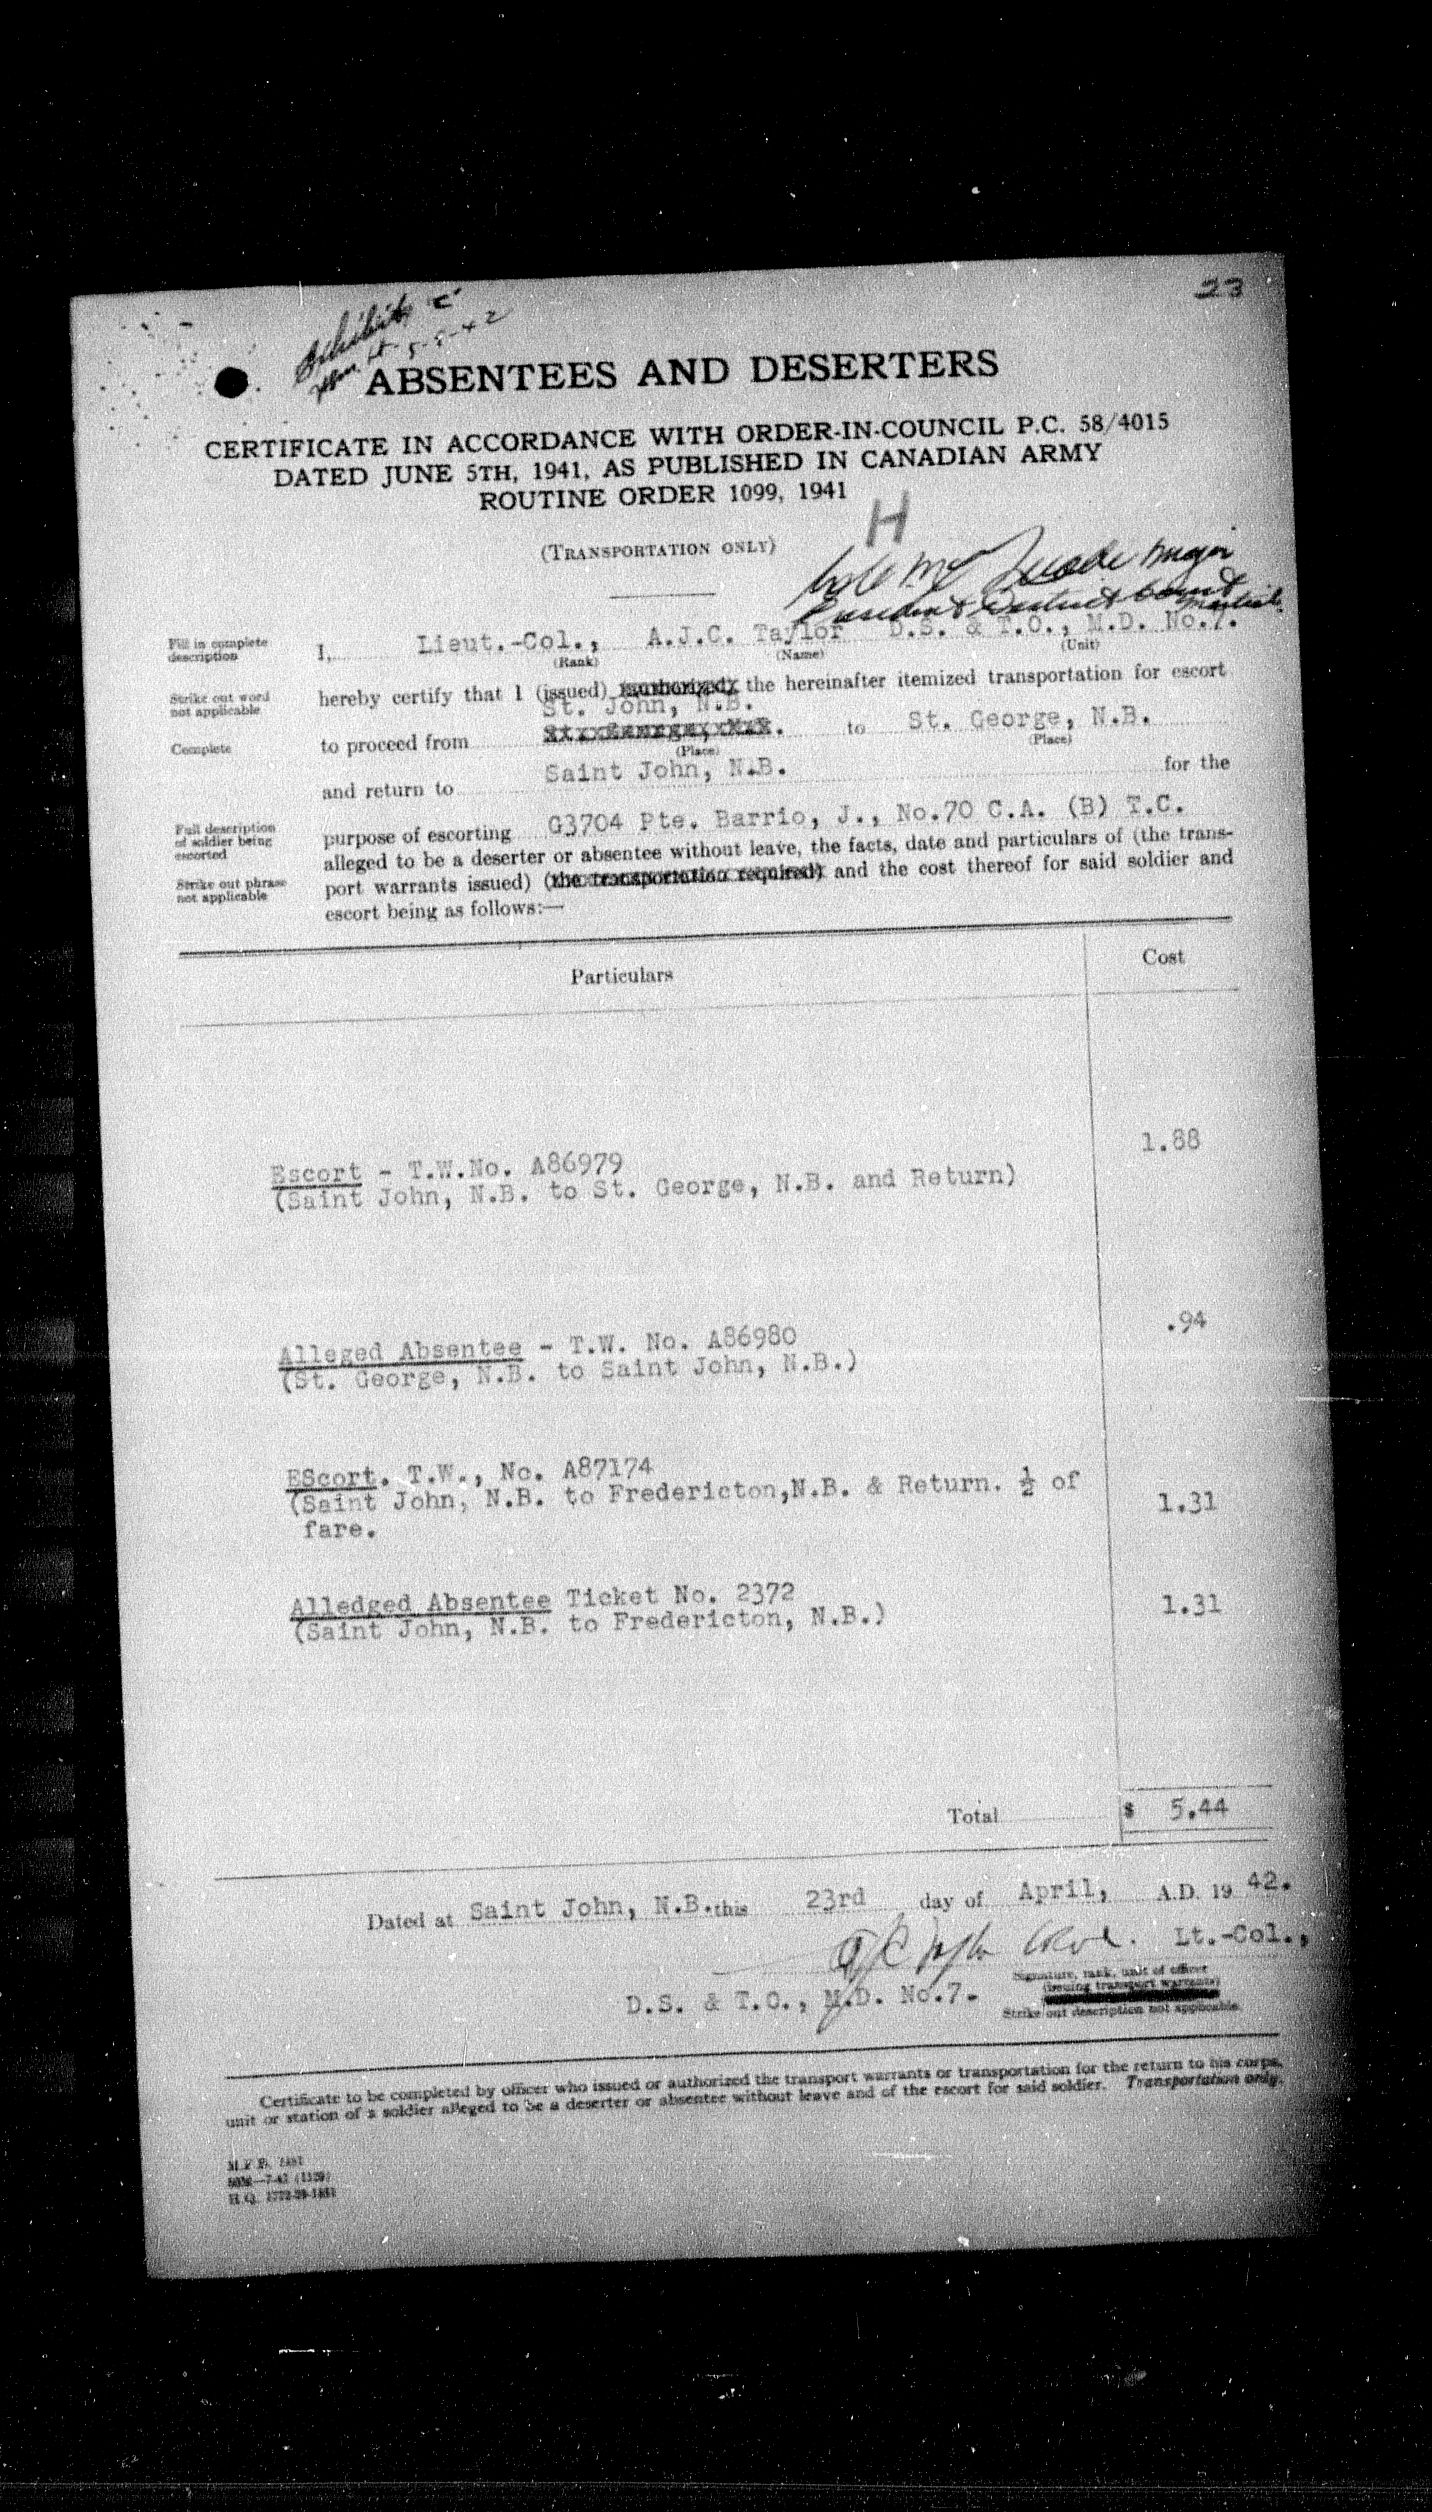 23
Exhibit "C"
5-5-42
ABSENTEES AND DESERTERS
CERTIFICATE IN ACCORDANCE WITH ORDER-IN-COUNCIL P.C. 58/4015
DATED JUNE 5TH, 1941, AS PUBLISHED IN CANADIAN ARMY
ROUTINE ORDER 1099, 1941
H
(TRANSPORTATION ONLY)
Major
President District Court
Martial.
Fill in complete
description
I, Lieut.-Col., A.J.C. Taylor D.S. & T.O., M.D. No.7.
(Rank) (Name) (Unit)
Strike out word
not applicable
hereby certify that I (issued) the hereinafter itemized transportation for escort
St. John, N.B.
Complete
to proceed from to St. George, N.B.
(Place) (Place)
and return to Saint John, N.B. for the
Full description
of soldier being
escorted
purpose of escorting G3704 Pte. Barrio, J., No.70 C.A. (B) T.C.
alleged to be a deserter or absentee without leave, the facts, date and particulars of (the trans-
Strike out phrase
not applicable
port warrants issued) (the transportation required) and the cost thereof for said soldier and
escort being as follows:—
Particulars Cost
Escort - T.W.No. A86979 1.88
(Saint John, N.B. to St. George, N.B. and Return)
Alleged Absentee - T.W. No. A86980 .94
(St. George, N.B. to Saint John, N.B.)
EScort. T.W., No. A87174
(Saint John, N.B. to Fredericton,N.B. & Return. ½ of 1.31
fare.
Alledged Absentee Ticket No. 2372 1.31
(Saint John, N.B. to Fredericton, N.B.)
Total $ 5.44
Dated at Saint John, N.B. this 23rd day of April, A.D. 19 42.
Lt.-Col.,
Signature, rank, unit of officer
(issuing transport warrants)
D.S. & T.O., M.D. No.7.
Strike out description not applicable
Certificate to be completed by officer who issued or authorized the transport warrants or transportation for the return to his corps,
unit or station of a soldier alleged to be a deserter or absentee without leave and of the escort for said soldier. Transportation only.
H.Q.